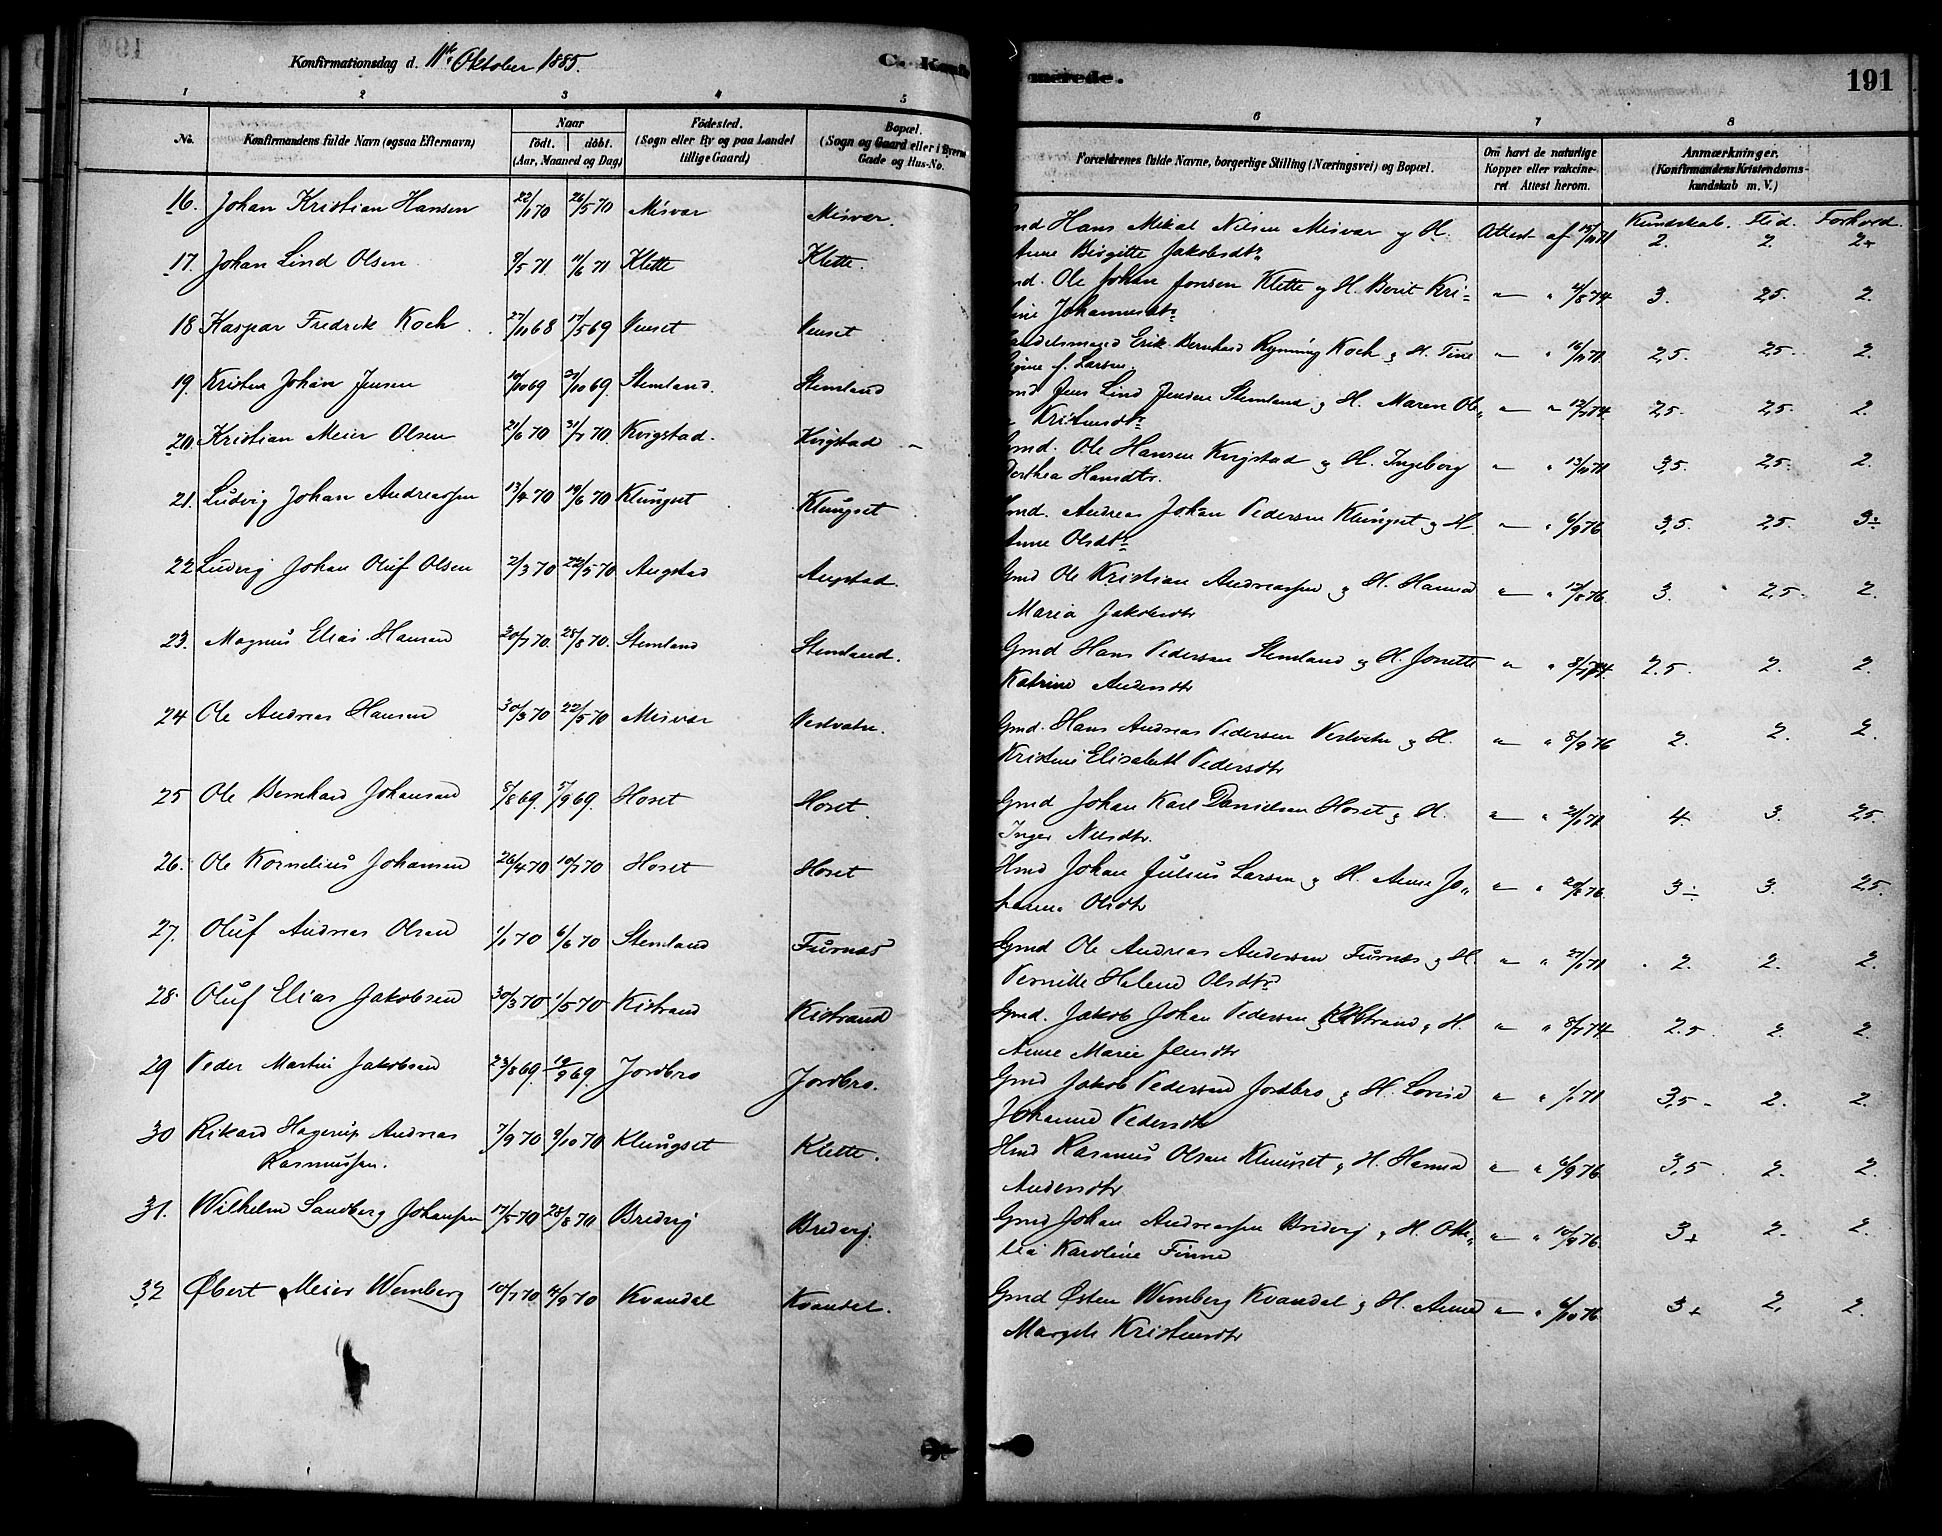 Konfirmationsdag d. 11te Oktober 1885. C. Konfir
merede. 191
1 2 3 4 5 6 7 8
No. Konfirmandens fulde Navn (ogsaa Efternavn) Naar födt. döbt. (Aar, Maaned og Dag) Födested. (Sogn eller By og paa Landet tillige Gaard) Bopæl. (Sogn og Gaard eller i Byerne Gade og Hus-No. Forældrenes fulde Navne, borgerlige Stilling (Næringsvei) og Bopæl. Om havt de naturlige Kopper eller vakcineret. Attest herom. Anmærkninger. (Konfirmandens Kristendomskundskab m. V.)
Kundskab. Flid. Forhold.
16. Johan Kristian Hansen 22/1 70 26/5 70 Misvær Misvær. Hans Mikal Nilsen Misvær og H. Attest af 2. 2. 2+
Anne Birgitte Jakobsdtr
17. Johan Lind Olsen 9/5 71 11/6 71 Klette Klette. Ole Johan Jonsen Klette og H. Berit Kri= " " 4/8 74 3. 2,5. 2.
Johannesdtr
18 Kaspar Fredrik Koch 27/11 68 17/5 69 Venset Venset Erik Bernhard Rynning Koch og H. Tine " " 16/11 71 2,5. 2,5. 2.
f. Larsen.
19. Kristen Johan Jensen 10/10 69 31/10 69. Stemland. Stemland Jens Lind Jensen Stemland og H. Maren Ole " " 2,5. 2,5. 2.
Kristensdtr
20. Kristian Meier Olsen 21/6 70 31/7 70. Kvigstad. Kvigstad Gmd. Ole Hansen Kvigstad og H. Ingeborg " " 13/11 71 3,5. 2,5. 2.
Dorthea Hansdtr.
21. Ludvig Johan Andreassen 13/4 70 19/6 70 Klungset Klungset Hmd. Andreas Johan Pedersen Klungset og H " " 6/9 76 3,5. 2,5. 3÷
Anne Olsdtr
22 Ludvig Johan Oluf Olsen 2/3 70 22/5 70 Angstad Angstad. Gmd Ole Kristian Andreassen og H. Hanna " " 12/8 76. 3. 2,5. 2.
Maria Jakobsdtr
23. Magnus Elias Hansen 30/7 70. 28/8 70. Stemland Stemland. Gmd Hans Pedersen Stemland og H. Jonette " " 2.5. 2. 2
Katrine Andersdtr
24 Ole Andreas Hansen 30/3 70 22/5 70 Misvær Vestvatn. Gmd. Hans Andreas Pedersen Vestvatn og H. " " 8/9 76 2. 2. 2.
Kristine Elisabeth Pedersdtr
25 Ole Bernhard Johansen 8/8 69. 5/9 69. Hoset Hoset. Gmd Johan Karl Danielsen Hoset og H. " " 2/1 71 4. 3. 2,5.
Inger Nilsdtr.
26. Ole Kornelius Johansen 26/4 70 10/7 70 Hoset Hoset Hmd Johan Julius Larsen og H. Anne Jo= " " 20/8 76. 3÷ 3. 2,5.
hanna Olsdtr
27. Oluf Andreas Olsen 1/1 70 6/6 70 Stemland Furnæs Gmd Ole Andreas Andersen Furnæs og H. " " 27/1 71 2. 2. 2.
Pernille Helene Olsdtr
28. Oluf Elias Jakobsen 30/3 70 1/5 70 Kistrand Kistrand Gmd. Jakob Johan Pedersen Kistrand og H. " " 8/7 74 2.5 2. 2.
Anne Marie Jensdtr
29 Peder Martin Jakobsen 23/8 69. 19/9 69. Jordbro Jordbro. Gmd Jakob Pedersen Jordbro og H. Lovise " " 1/1 71 3,5 - 2. 2.
Johanna Pedersdtr
30 Rikard Hagerup Andreas 7/9 70 9/10 70 Klungset Klette. Hmd Rasmus Olsen Klungset og H. Hanna " " 6/9 76. 3,5 2. 2.
Rasmussen. Andersdtr
31. Wilhelm Sandberg Johansen 17/5 70 28/8 70 Bredvij Bredvij. Gmd Johan Andreassen Bredvij og H. Otte= " " 10/9 76. 3+ 2. 2.
lia Karoline Finne
32 Øbert Meier Wemberg 10/7 70 4/9 70 Kvandal Kvandal. Gmd Østen Wemberg Kvandal og H. Anna " " 6/10 76. 3+ 2. 2.
Margrete Kristensdtr